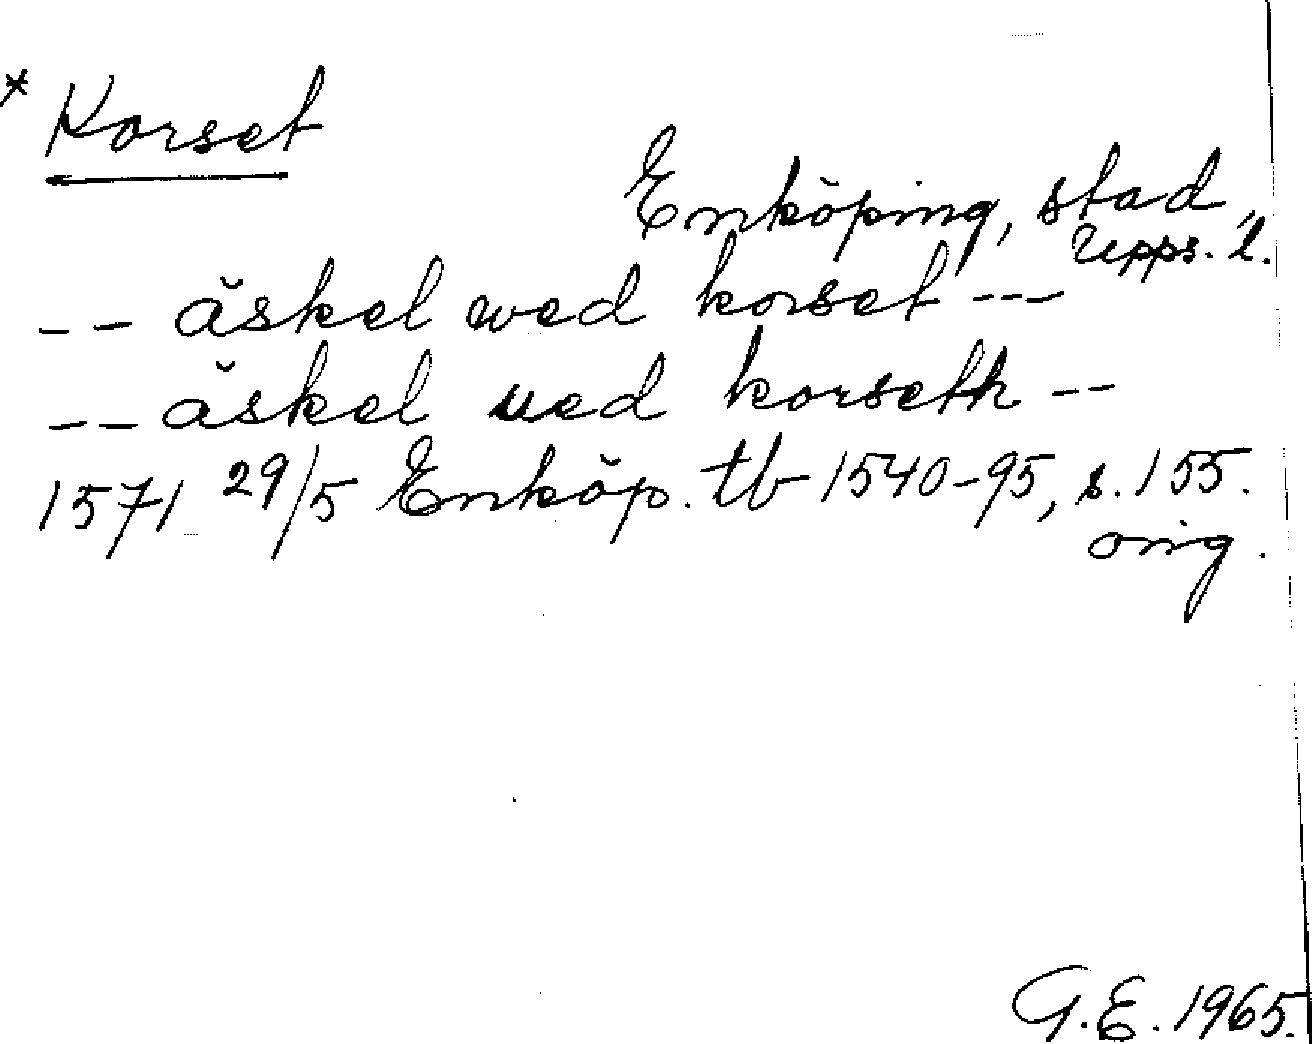 * Korset
Enköping, stad,
Upps. l.
-- äskel wed korset ---
-- äskel ued korseth --
1571 29/5 Enköp. tb 1540-95, s. 155.
orig.
G.E. 1965.